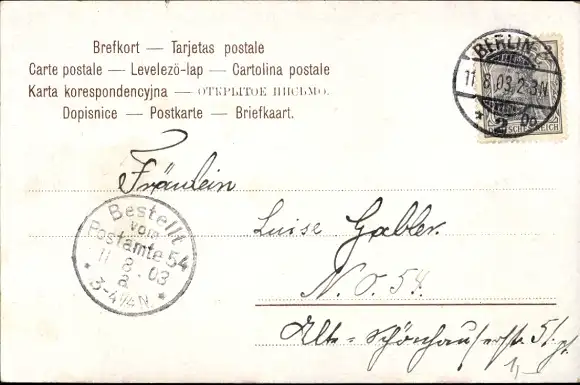 Brefkort — Tarjetas postale
Carte postale — Levelezö-lap — Cartolina postale
Karta korespondencyjna — ОТКРЫТОЕ ПИСЬМО.
Dopisnice — Postkarte — Briefkaart.
BERLIN C
11.8.03.2-3N
* 2
Fräulein
Luise Gabler.
N. O. 54.
Alte-Schönhauserstr. 51
Bestellt
vom
Postamte 54
11. 8. 03
a.
* 3-4¼N *